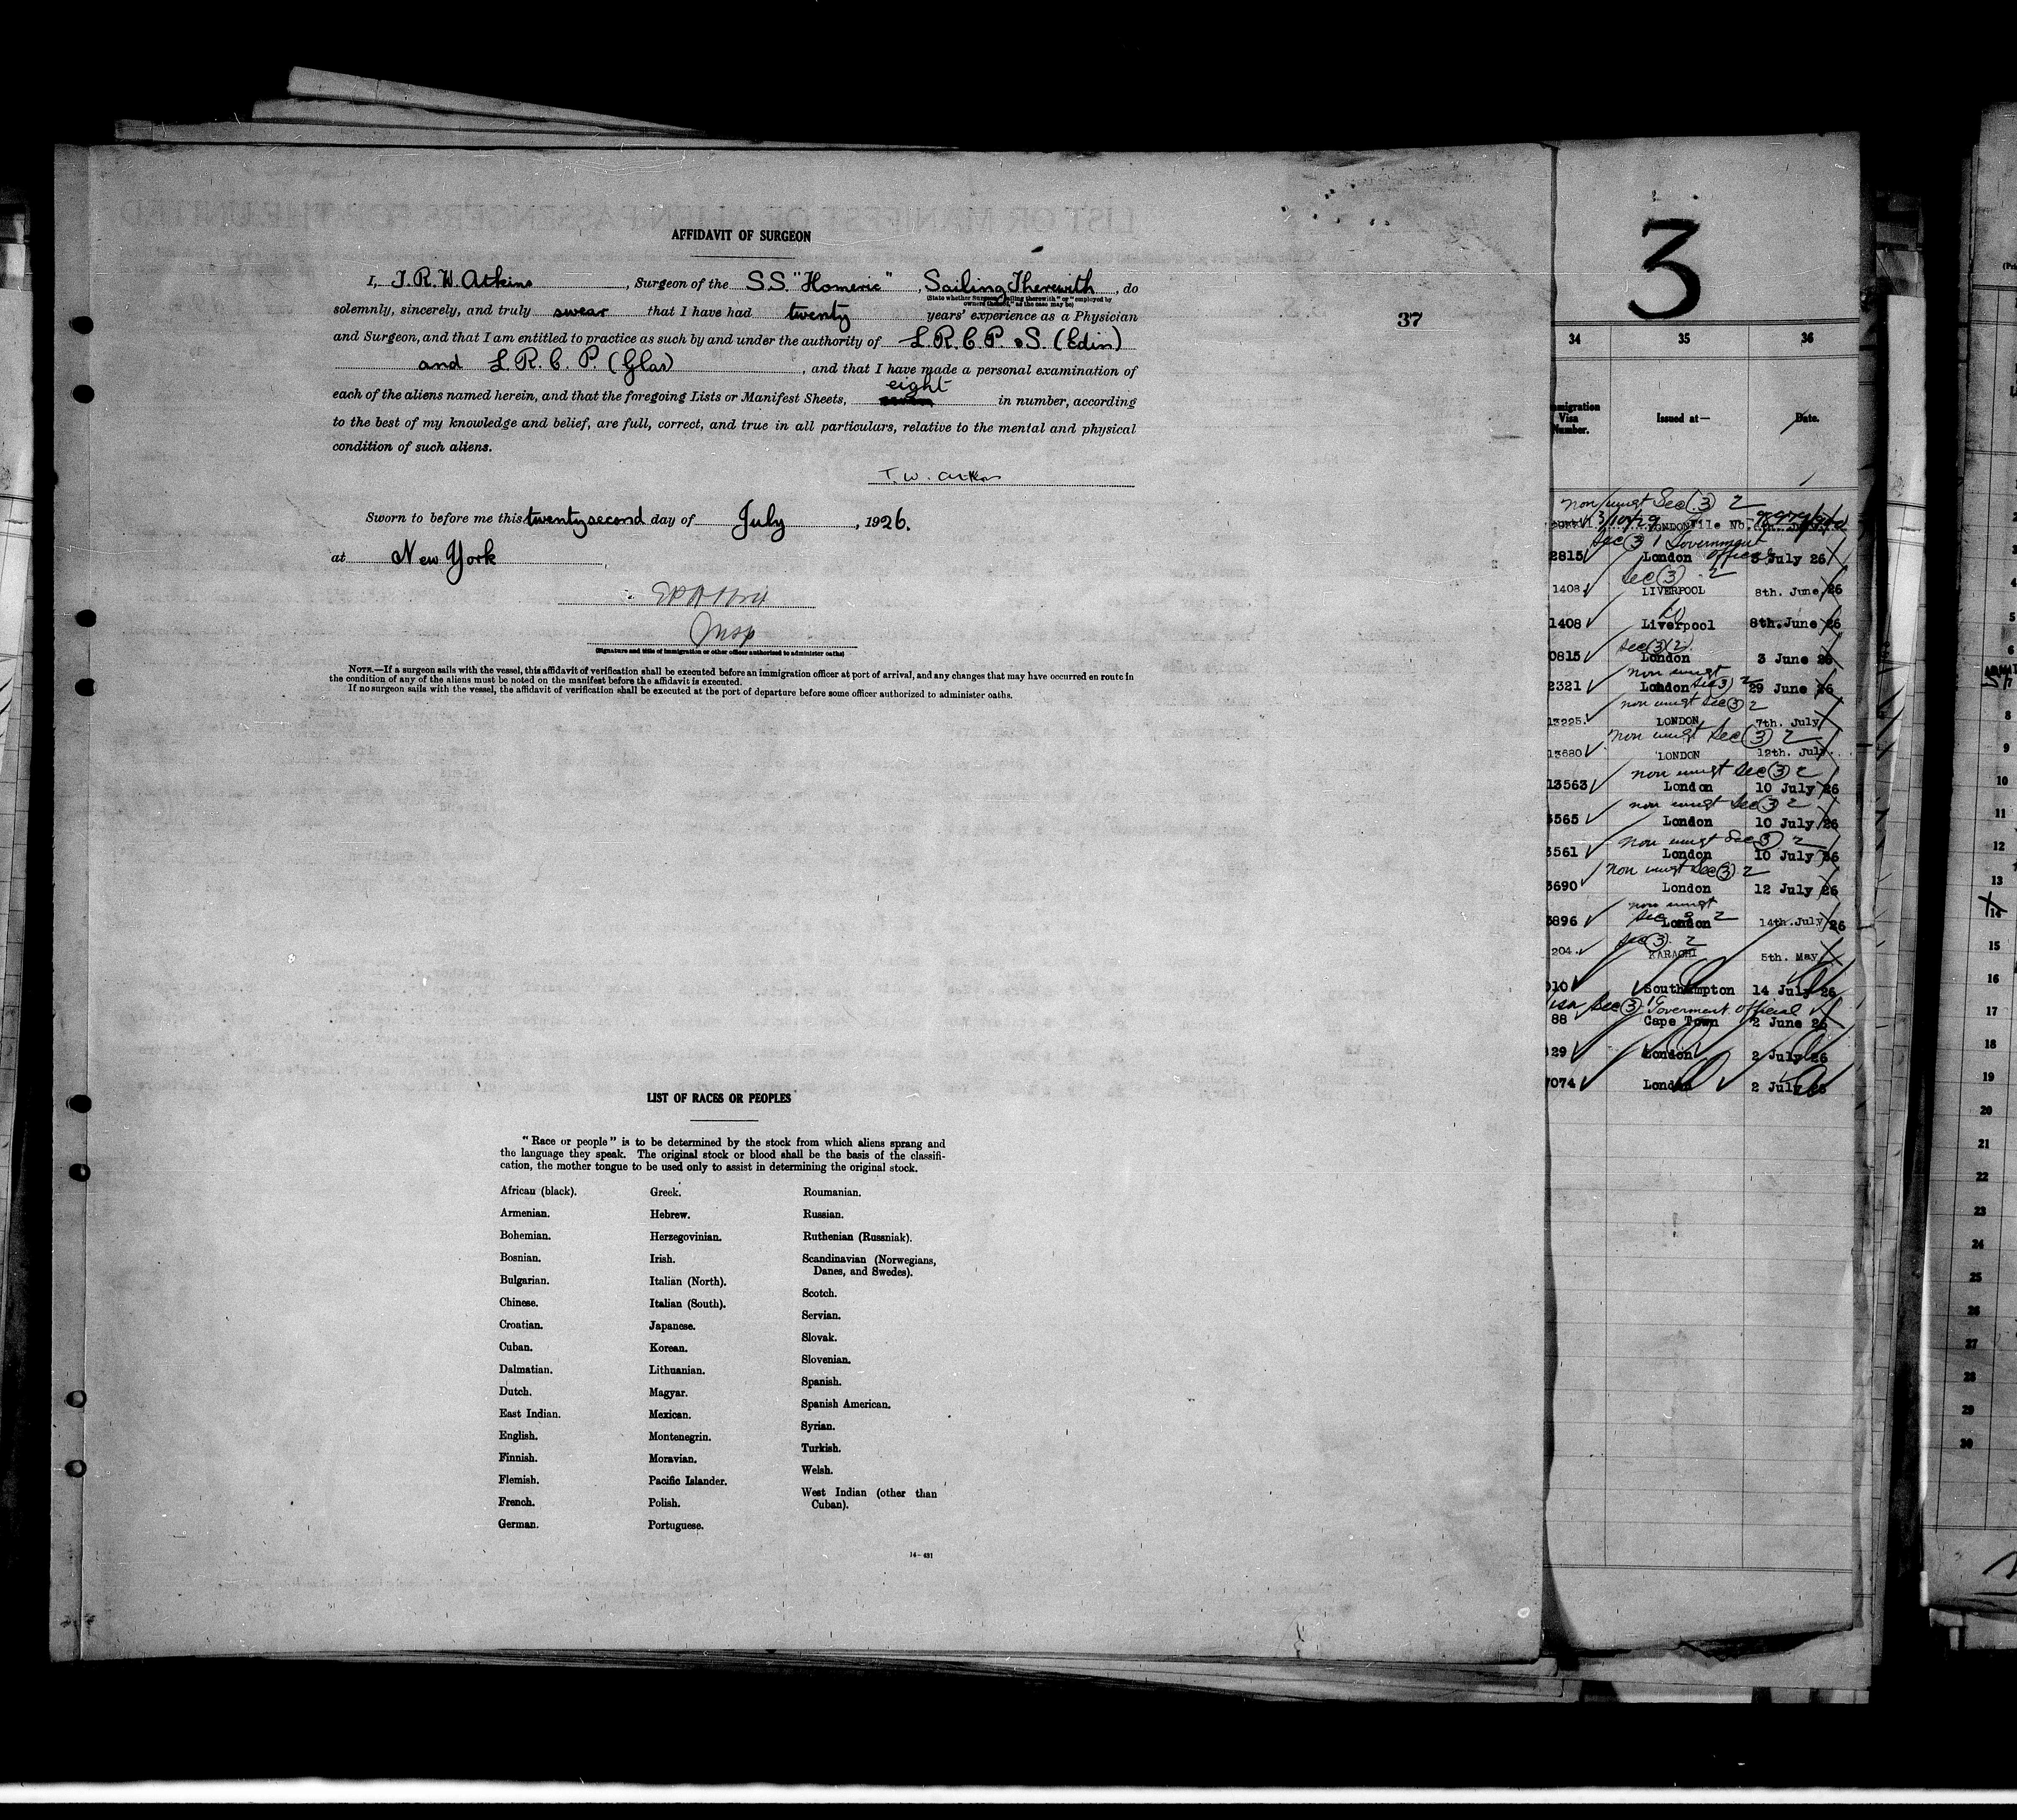 AFFIDAVIT OF SURGEON
I, T.R.W. Atkins, Surgeon of the S.S. "Homeric", Sailing Therewith, do
(State whether Surgeon "sailing therewith" or "employed by
owners thereof," as the case may be)
solemnly, sincerely, and truly swear that I have had twenty years' experience as a Physician
and Surgeon, and that I am entitled to practice as such by and under the authority of L.R.C.P. & S. (Edin)
and L.R.C.P. (Glas), and that I have made a personal examination of
eight
each of the aliens named herein, and that the foregoing Lists or Manifest Sheets, in number, according
to the best of my knowledge and belief, are full, correct, and true in all particulars, relative to the mental and physical
condition of such aliens.
T. W. Atkins
Sworn to before me this twenty second day of July, 1926.
at New York
Insp
(Signature and title of immigration or other officer authorized to administer oaths)
NOTE.—If a surgeon sails with the vessel, this affidavit of verification shall be executed before an immigration officer at port of arrival, and any changes that may have occurred en route in
the condition of any of the aliens must be noted on the manifest before the affidavit is executed.
If no surgeon sails with the vessel, the affidavit of verification shall be executed at the port of departure before some officer authorized to administer oaths.
37
LIST OF RACES OR PEOPLES
"Race or people" is to be determined by the stock from which aliens sprang and
the language they speak. The original stock or blood shall be the basis of the classifi-
cation, the mother tongue to be used only to assist in determining the original stock.
African (black).
Armenian.
Bohemian.
Bosnian.
Bulgarian.
Chinese.
Croatian.
Cuban.
Dalmatian.
Dutch.
East Indian.
English.
Finnish.
Flemish.
French.
German.
Greek.
Hebrew.
Herzegovinian.
Irish.
Italian (North).
Italian (South).
Japanese.
Korean.
Lithuanian.
Magyar.
Mexican.
Montenegrin.
Moravian.
Pacific Islander.
Polish.
Portuguese.
Roumanian.
Russian.
Ruthenian (Russniak).
Scandinavian (Norwegians,
Danes, and Swedes).
Scotch.
Servian.
Slovak.
Slovenian.
Spanish.
Spanish American.
Syrian.
Turkish.
Welsh.
West Indian (other than
Cuban).
14-431
3
34 35 36
Visa
Number.
Issued at—
Date.
non immgt Sec (3) 2
LONDON File No.
Sec (3) 1 Government
2815 London Official 3 July 26
Sec (3) 2
1408 LIVERPOOL 8th. June 26
1408 Liverpool 8th. June 26
Sec (3) (2)
0815 London 3 June 26
non immgt
2321 London Sec (3) 2 29 June 26
non immgt Sec (3) 2
13225. LONDON 7th. July
non immgt Sec (3) 2
13680 LONDON 12th. July
non immgt Sec (3) 2
13563 London 10 July 26
non immgt Sec (3) 2
3565 London 10 July 26
non immgt Sec (3) 2
3561 London 10 July 26
non immgt Sec (3) 2
3690 London 12 July 26
non immgt
Sec 3 2
3896 London 14th. July 26
Sec (3) 2
204. KARACHI 5th. May
010 Southampton 14 July 26
Visa Sec (3) 1 Goverment official
88 Cape Town 2 June 26
129 London 2 July 26
7074 London 2 July 26
2
3
4
5
6
7
8
9
10
11
12
13
14
15
16
17
18
19
20
21
22
23
24
25
26
27
28
29
30